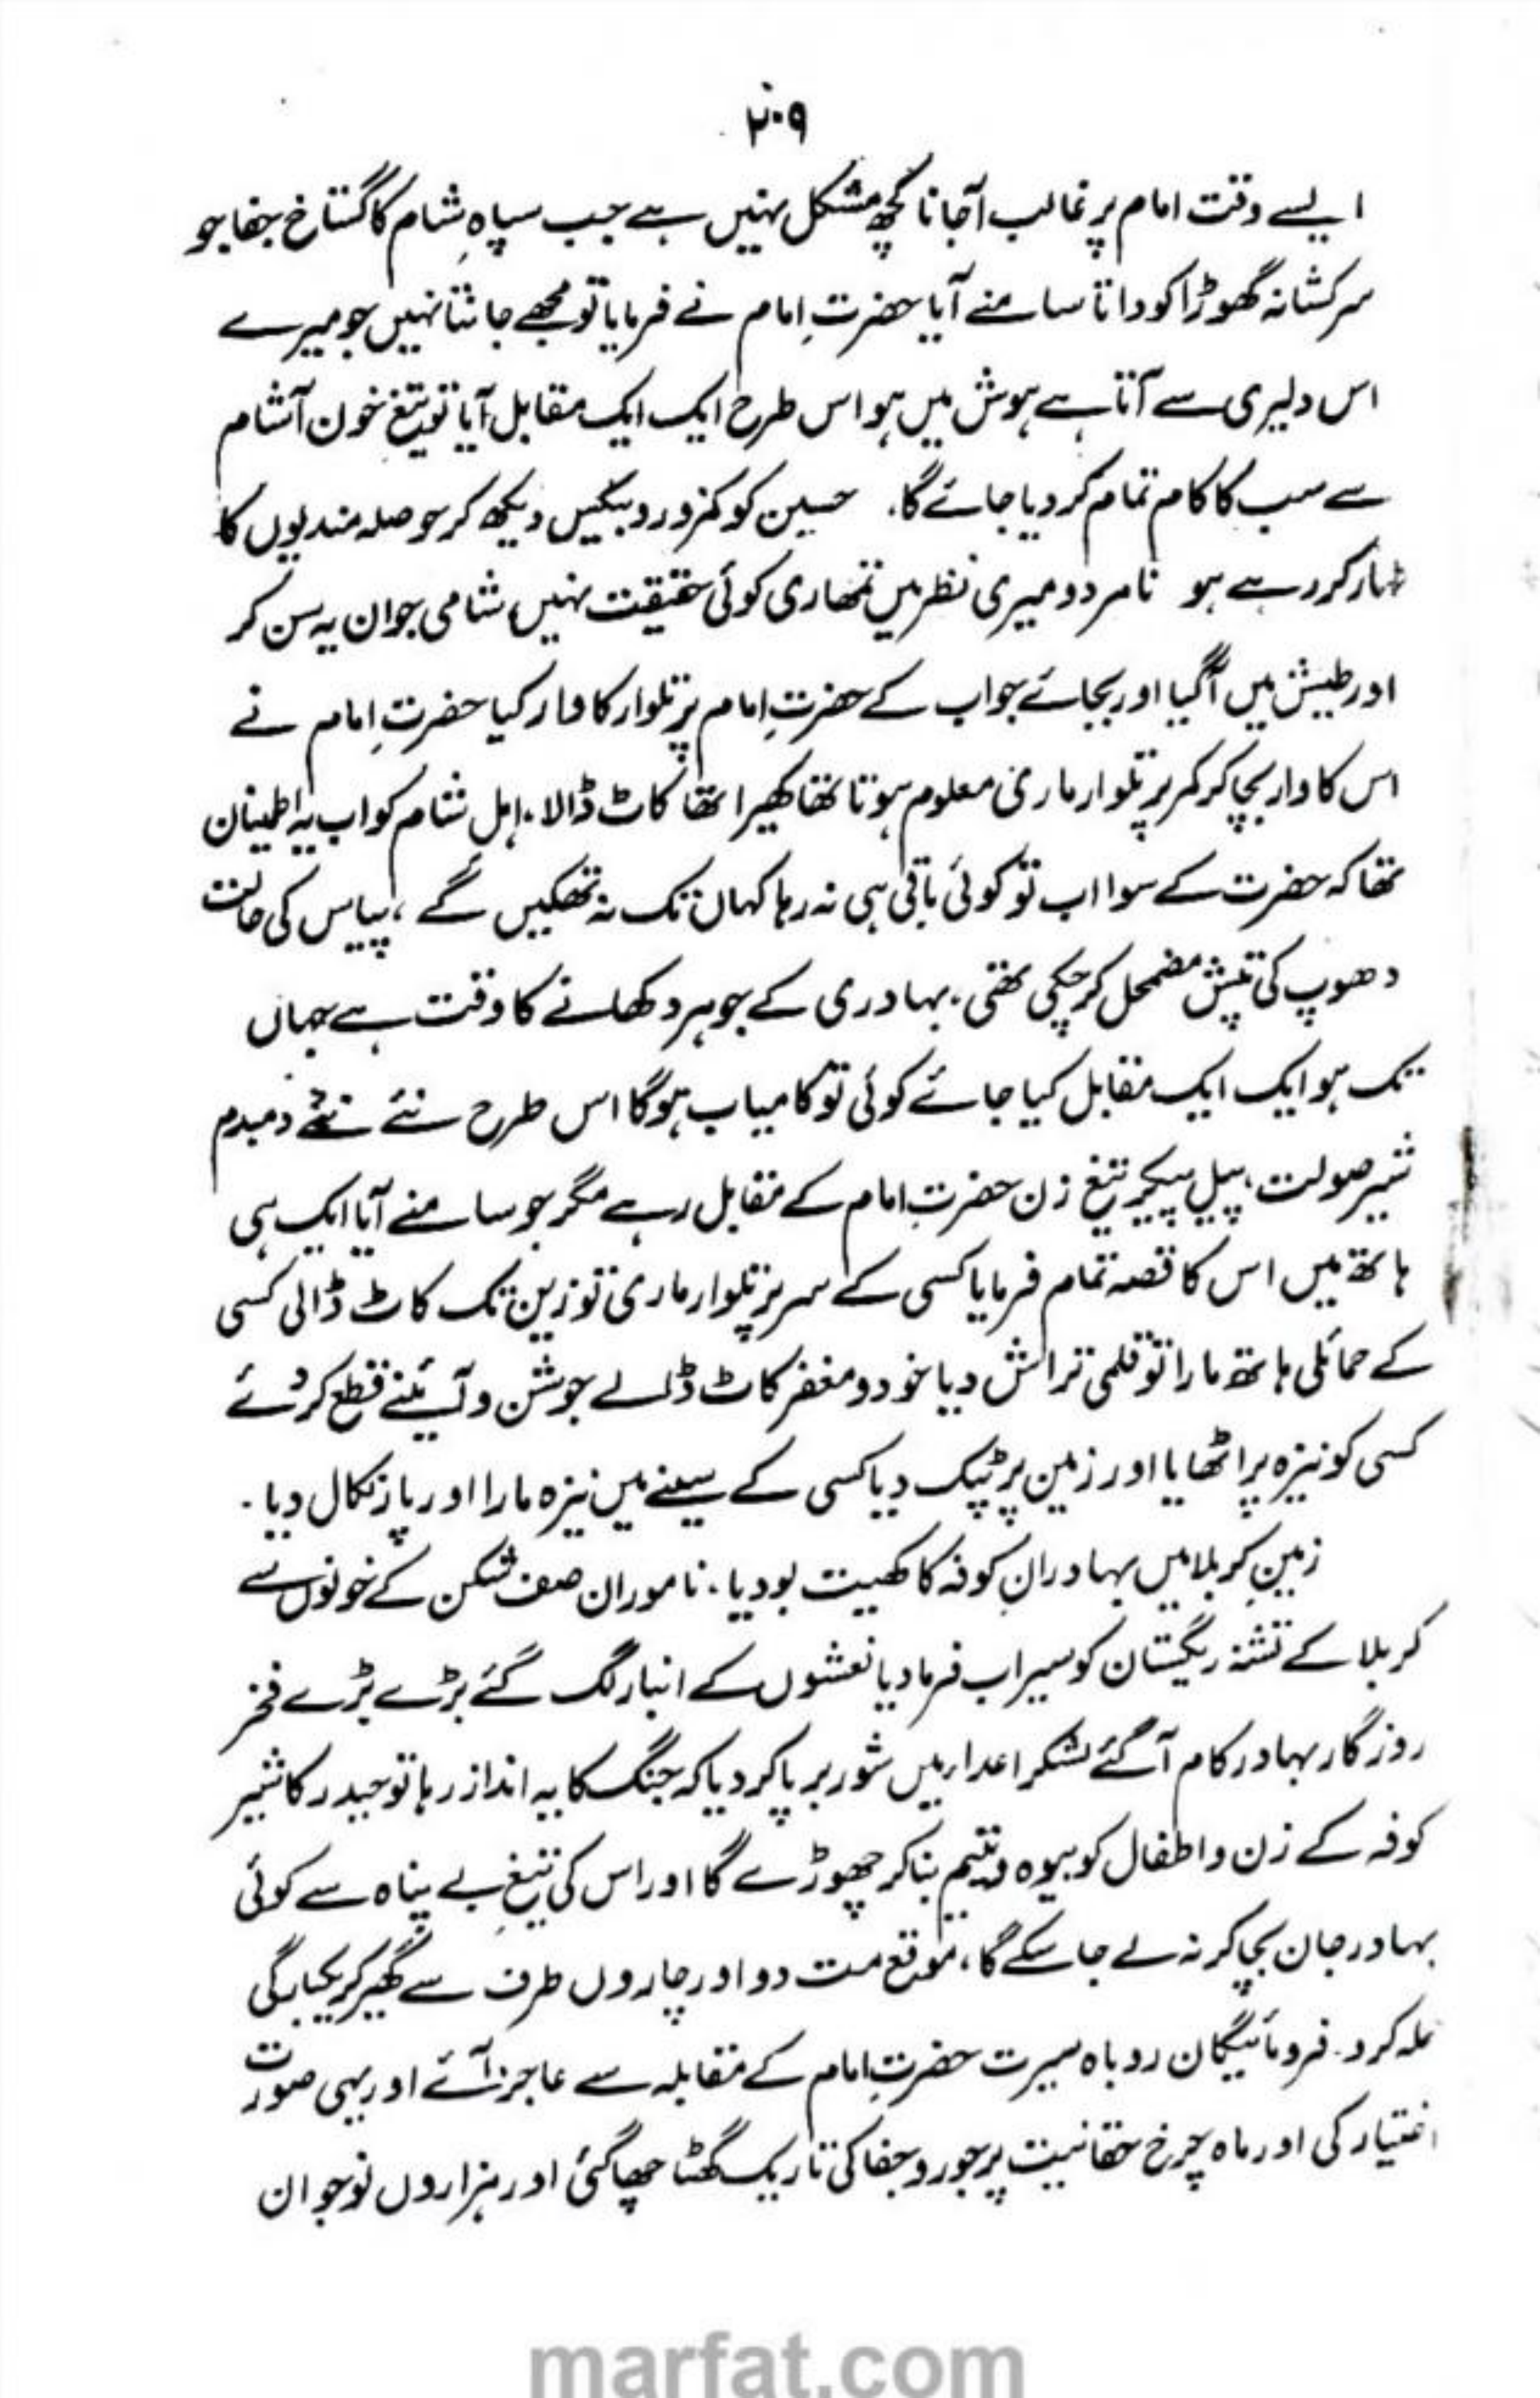 ۲۰۹
ایسے وقت امام پر غالب آجانا کچھ مشکل نہیں ہے جب سپاہِ شام کا گستاخ جفاجو
سرکشانہ گھوڑا کوداتا سامنے آیا حضرتِ امام نے فرمایا تو مجھے جانتا نہیں جو میرے
اس دلیری سے آتا ہے ہوش میں ہو اس طرح ایک ایک مقابل آیا تو تیغ خون آشام
سے سب کا کام تمام کر دیا جائے گا۔ حسین کو کمزور و بیکس دیکھ کر حوصلہ مندیوں کا
ظہار کر رہے ہو نامردو میری نظر میں تمھاری کوئی حقیقت نہیں، شامی جوان یہ سن کر
اور طیش میں آگیا اور بجائے جواب کے حضرتِ امام پر تلوار کا وار کیا حضرتِ امام نے
اس کا وار بچا کر کمر پر تلوار ماری معلوم ہوتا تھا کھیرا تھا کاٹ ڈالا۔ اہل شام کو اب یہ اطمینان
تھا کہ حضرت کے سوا اب تو کوئی باقی ہی نہ رہا کہاں تک نہ تھکیں گے، پیاس کی حالت
دھوپ کی تپش مضمحل کر چکی تھی، بہادری کے جوہر دکھانے کا وقت ہے جہاں
تک ہو ایک ایک مقابل کیا جائے کوئی تو کامیاب ہوگا اس طرح نئے نئے دمبدم
شیر صولت، پیل پیکر تیغ زن حضرتِ امام کے مقابل رہے مگر جو سامنے آیا ایک ہی
ہاتھ میں اس کا قصہ تمام فرمایا کسی کے سر پر تلوار ماری تو زین تک کاٹ ڈالی کسی
کے حمائلی ہاتھ مارا تو قلمی تراش دیا خود و مغفر کاٹ ڈالے جوشن و آئینے قطع کر دئے
کسی کو نیزہ پر اٹھایا اور زمین پر ٹپک دیا کسی کے سینے میں نیزہ مارا اور پار نکال دیا۔
زمینِ کربلا میں بہادرانِ کوفہ کا کھیت بو دیا۔ ناموران صف شکن کے خونوں سے
کربلا کے تشنہ ریگستان کو سیراب فرما دیا نعشوں کے انبار لگ گئے بڑے بڑے فخر
روزگار بہادر کام آگئے لشکر اعداء میں شور برپا کر دیا کہ جنگ کا یہ انداز رہا تو حیدر کا شیر
کوفہ کے زن و اطفال کو بیوہ و یتیم بنا کر چھوڑے گا اور اس کی تیغِ بے پناہ سے کوئی
بہادر جان بچا کر نہ لے جا سکے گا، موقع مت دو اور چاروں طرف سے گھیر کر یکبارگی
ملہ کرو۔ فرومائیگان روباہ سیرت حضرتِ امام کے مقابلہ سے عاجز آئے اور یہی صورت
اختیار کی اور ماہ چرخ حقانیت پر جور و جفا کی تاریک گھٹا چھا گئی اور ہزاروں نوجوان
marfat.com